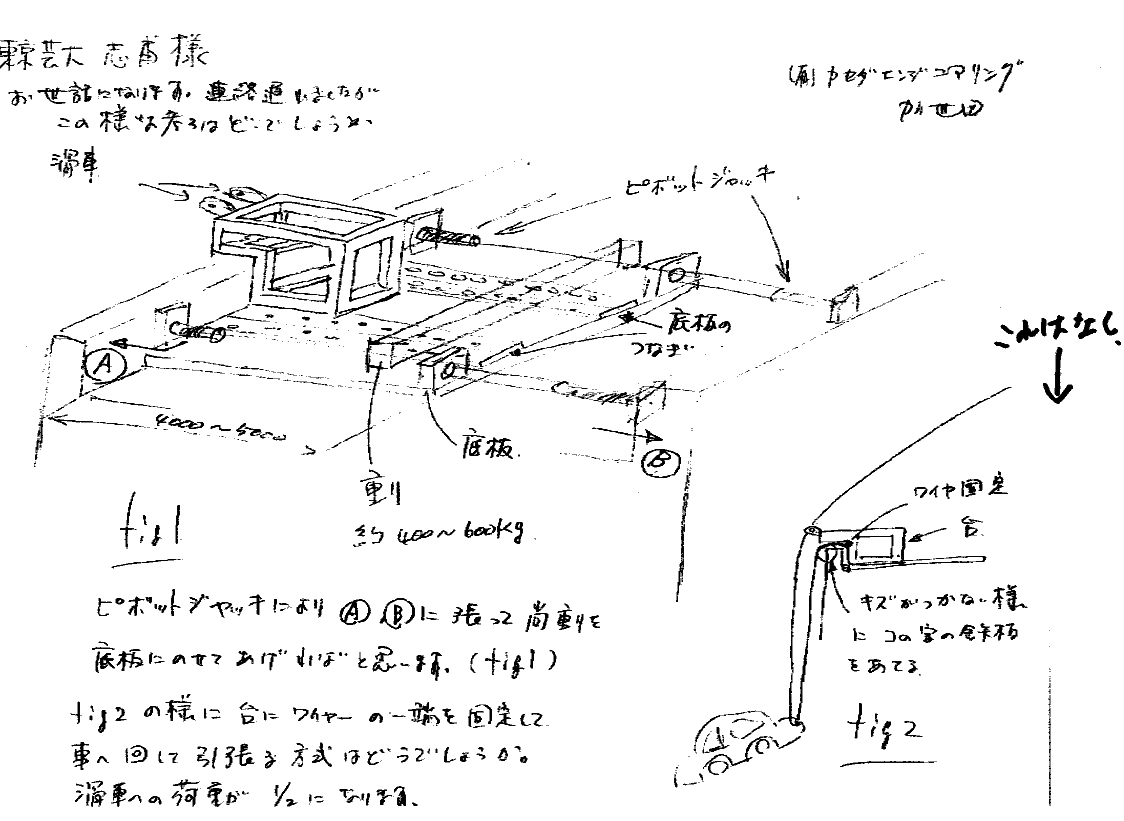 東京芸大 志斎様
(有)カセダエンジニアリング
加世田
お世話になります。連絡遅れましたが
この様な考えはどうでしょうか
滑車
ピボットジャッキ
底板の
つなぎ
これはなし
A
4000～5000
底板
B
重り
約 400～600kg
fig1
ワイヤ固定
台
キズがつかない様
にコの字の鉄板
をあてる
fig2
ピボットジャッキにより Ⓐ Ⓑに張って尚重りを
底板にのせてあげればと思います。(fig1)
fig2 の様に台にワイヤーの一端を固定して
車へ回して引張る方式はどうでしょうか。
滑車への荷重が 1/2 になります。